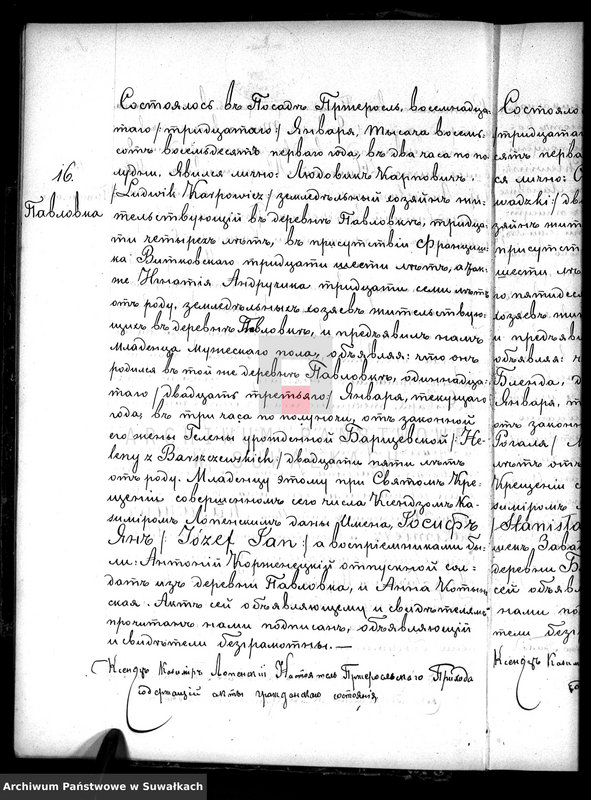 16.
Павловка
Состоялось въ Посадѣ Пржеросль, восемнадца-
таго /: тридцатаго :/ Января, тысяча восемь-
сотъ восемьдесятъ перваго года, въ два часа по по-
лудни. Явился лично: Людовикъ Карповичъ
/: Ludwik Karpowicz :/ земледѣльный хозяинъ жи-
тельствующій въ деревнѣ Павловкѣ, тридца-
ти четырехъ лѣтъ, въ присутствіи Франциш-
ка Витковскаго тридцати шести лѣтъ, а так-
же Игнатія Андручика тридцати семи лѣтъ
отъ роду, земледѣльныхъ хозяевъ жительствую-
щихъ въ деревнѣ Павловкѣ, и предъявилъ намъ
младенца мужескаго пола, объявляя: что онъ
родился въ той же деревнѣ Павловкѣ, одиннадца-
таго /: двадцать третьяго :/ Января, текущаго
года, въ три часа по полуночи, отъ законной
его жены Гелены урожденной Барщевской /: He-
leny z Barszczewskich :/ двадцати пяти лѣтъ
отъ роду. Младенцу этому при Святомъ Кре-
щеніи совершенномъ сего числа Ксендзомъ Ка-
зиміромъ Лопенскимъ даны имена, Іосифъ
Янъ /: Józef Jan :/ а воспріемниками бы-
ли: Антоній Корженецкій отпускной сол-
датъ изъ деревни Павловка, и Анна Котын-
ская. Актъ сей объявляющему и свидѣтелямъ
прочитанъ нами подписанъ, объявляющій
и свидѣтели безграмотны. —
Ксендзъ Казиміръ Лопенскій Настоятель Пржеросльскаго Прихода
содержащій акты гражданскаго состоянія
Состояло
тридцатаг
сятъ перва
ся лично:
wadzki :/ дв
зяинъ жит
присутст
шести лѣ
го пятидес
хозяевъ жи
и предъяв
объявляя: ч
Бленда, д
Января, т
отъ закон
Рогаля /
лѣтъ отъ
Крещеніи с
зиміромъ
/: Stanisła
шекъ Зава
деревни Б
сей объявл
нами по
тели безг
Ксендзъ Казим
Archiwum Państwowe w Suwałkach